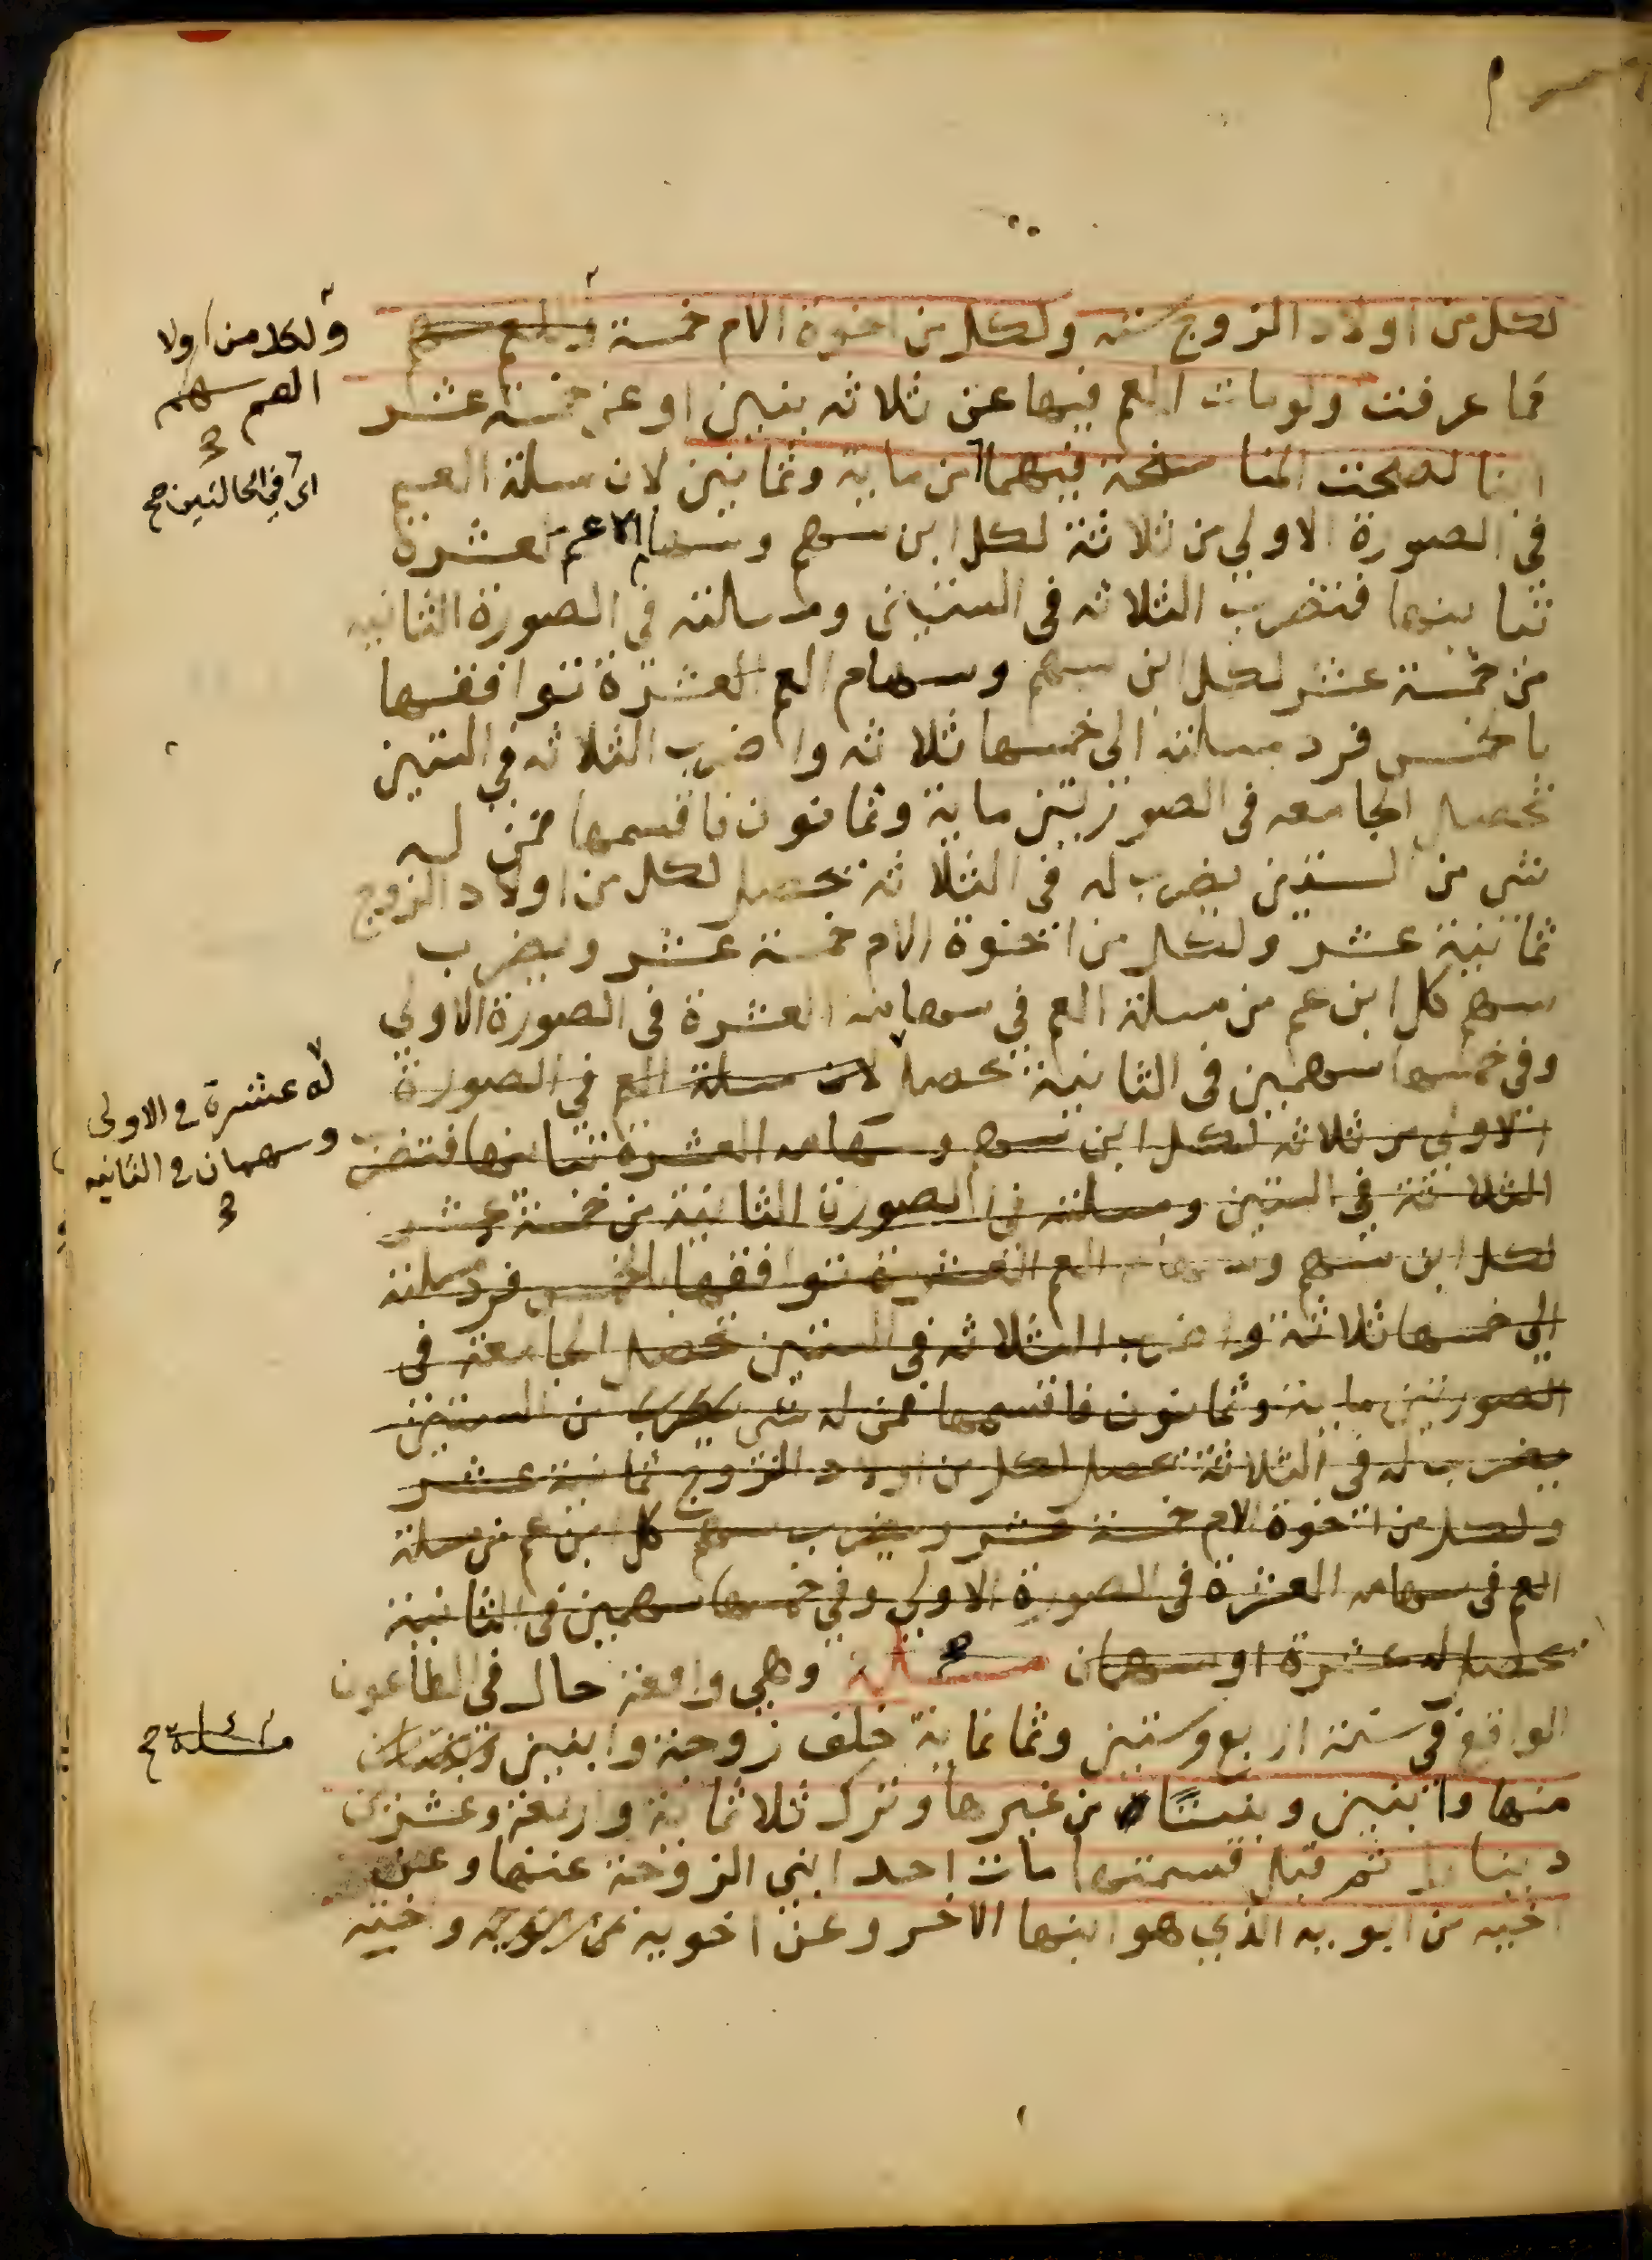 لكل من اولاد الزوج ستة ولكل من اخوة الام خمسة وللعم سهم
ولكل من اولا
العم سهم
كما عرفت ولو مات العم فيها عن ثلاثه بنين او عن خمسة عشر
ابنا لصحت المناسخة فيهما من ماية وثمانين لان مسلة العم
اى في الحالتين صح
في الصورة الاولي من ثلاثة لكل ابن سهم وسهام العم العشرة
تباينها فتضرب الثلاثه في الستين ومسالته في الصورة الثانيه
من خمسة عشر لكل ابن سهم وسهام العم العشرة توافقها
بالخمس فرد مسلته الى خمسها ثلاثه واضرب الثلاثه في الستين
تحصل الجامعه في الصورتين ماية وثمانون فاقسمها فمن له
شى من الستين يضرب له في الثلاثة تحصل لكل من اولاد الزوج
ثمانية عشر ولكل من اخوة الام خمسة عشر ويضرب
سهم كل ابن عم من مسلة العم في سهامه العشرة في الصورة الاولي
وفي خمسها سهمين في الثانية تحصل لان مسلة العم في الصورة
له عشرة في الاولى
وسهمان في الثانيه
الاولي من ثلاثه لكل ابن سهم وسهامه العشرة تباينها فتضرب
الثلاثة في الستين ومسلته في الصورة الثانية من خمسة عشر
لكل ابن سهم وسهام العم العشرة توافقها بالخمس فرد مسلته
الي خمسها ثلاثة واضرب الثلاثه في الستين تحصل الجامعة في
الصورتين ماية وثمانون فاقسمها فمن له شى من الستين
يضرب له في الثلاثة تحصل لكل من اولاد الزوج ثمانية عشر
ولكل من اخوة الام خمسة عشر ويضرب سهم كل ابن عم من مسلة
العم في سهامه العشرة في الصورة الاولي وفي خمسها سهمين في الثانية
تحصل له عشرة او سهمان مسالة وهي واقعة حال في الطاعون
الواقع في سنة اربع وستين وثمانماية خلف زوجة وابنين
مسلة صح
منها وابنين وبنتا من غيرها وترك ثلاثماية واربعة وعشرين
دينارا ثم قبل قسمتها مات احد ابني الزوجة عنها وعن
اخيه من ابويه الذي هو ابنها الاخر وعن اخويه من ابويه واخيه